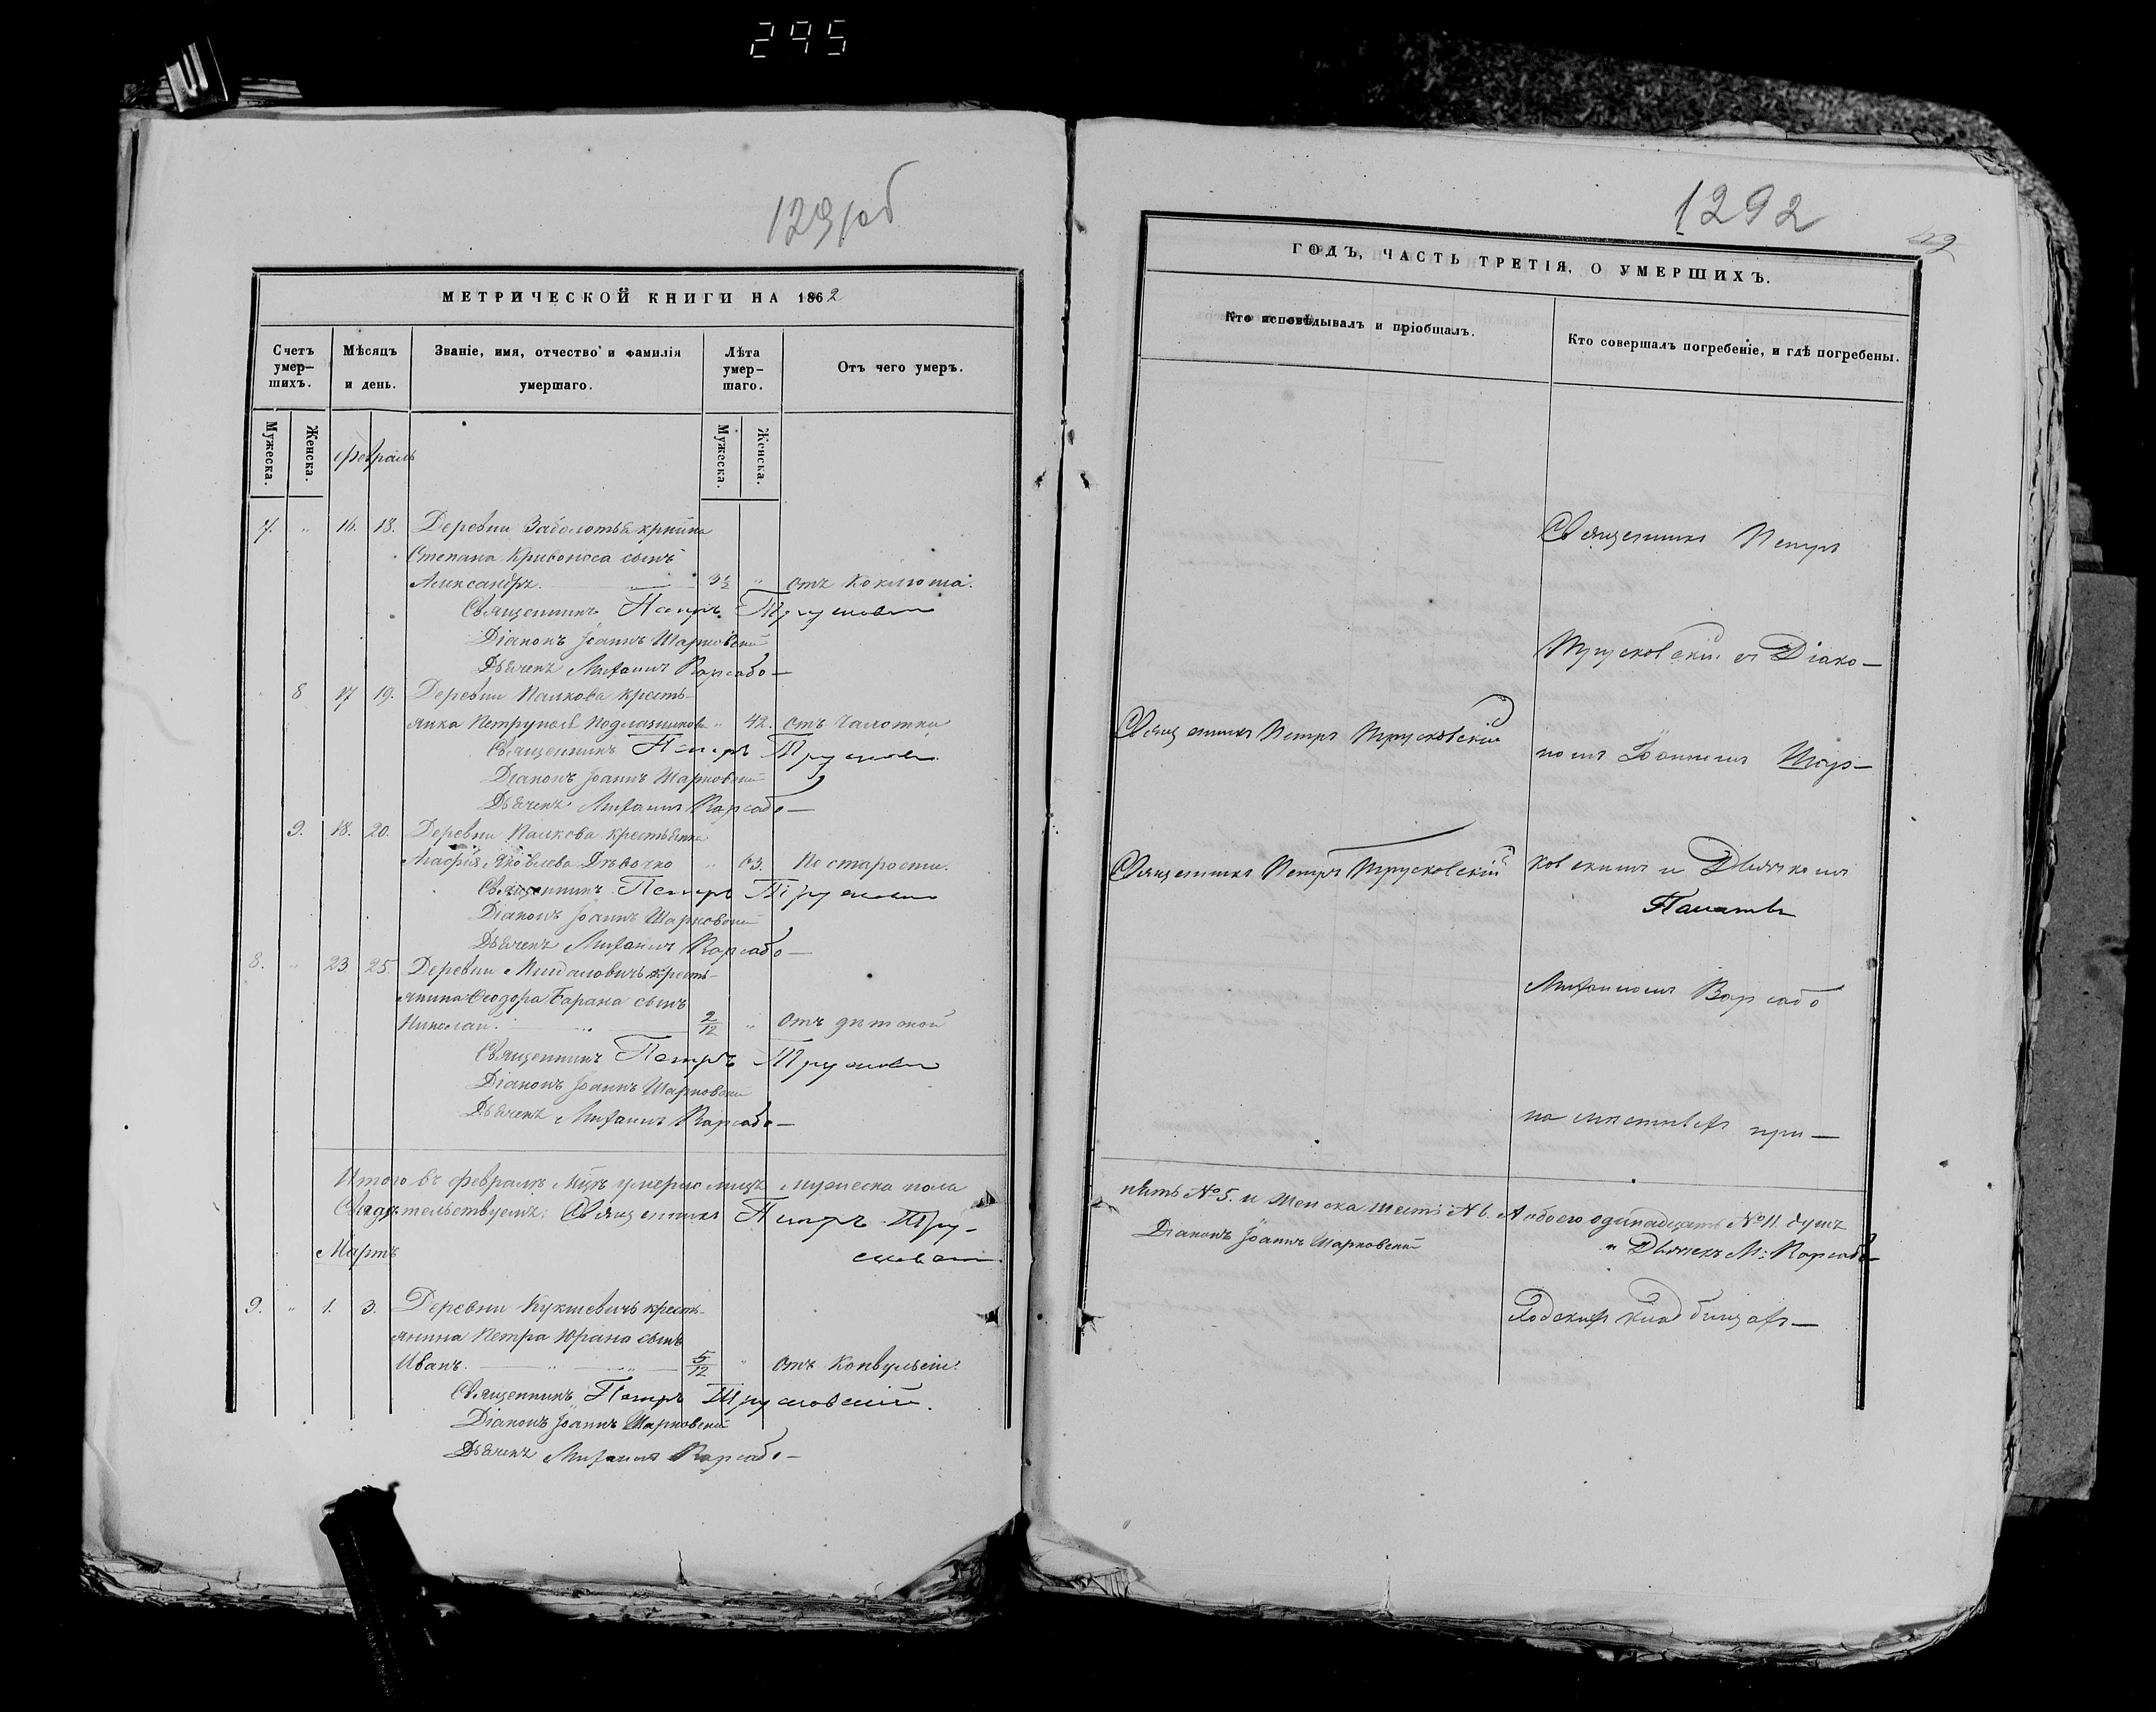 295
129 об
МЕТРИЧЕСКОЙ КНИГИ НА 1862
Счетъ умер-шихъ.
Мѣсяцъ и день.
Званіе, имя, отчество и фамилія умершаго.
Лѣта умер-шаго.
Отъ чего умеръ.
Мужеска.
Женска.
Февраль
Мужеска.
Женска.
7. " 16. 18. Деревни Заболотья крпина
Степана Кривоноса сынъ
Александръ. 3½ " отъ коклюша.
Священникъ Петръ
Діаконъ Іоаннъ Шарковскій
Дьячекъ Михаилъ
8 17 19. Деревни Палкова кресть-
янка 42. отъ чахотки
Священникъ Петръ
Діаконъ Іоаннъ Шарковскій
Дьячекъ Михаилъ
9. 18. 20. Деревни Палкова крестьянка
Яковлева " 63. По старости.
Священникъ Петръ
Діаконъ Іоаннъ Шарковскій
Дьячекъ Михаилъ
8. " 23. 25. Деревни кресть-
янина Ѳеодора Барана сынъ
Николай. 2/12 " Отъ дѣтской
Священникъ Петръ
Діаконъ Іоаннъ Шарковскій
Дьячекъ Михаилъ
Итого въ февралѣ мцѣ умерло лицъ мужеска пола
Свидѣтельствуемъ: Священникъ Петръ Тру-
сковскій
Мартъ
9. " 1. 3. Деревни Кукшевичъ кресть-
янина Петра Юрана сынъ
Иванъ. 5/12 " Отъ конвульсіи.
Священникъ Петръ Трусковскій.
Діаконъ Іоаннъ Шарковскій
Дьячекъ Михаилъ
1292
ГОДЪ, ЧАСТЬ ТРЕТІЯ, О УМЕРШИХЪ.
Кто исповѣдывалъ и пріобщалъ.
Кто совершалъ погребеніе, и гдѣ погребены.
Священникъ Петръ
Трусковскій съ Діако-
Священникъ Петръ Трусковскій
номъ Іоанномъ Шар-
Священникъ Петръ Трусковскій
ковскимъ и Дьячкомъ
Михаиломъ
на мѣстныхъ при-
пять №5. и женска шесть №6. А обоего одинадцать №11. душъ
Діаконъ Іоаннъ Шарковскій
Дьячекъ М:
ходскихъ кладбищахъ-